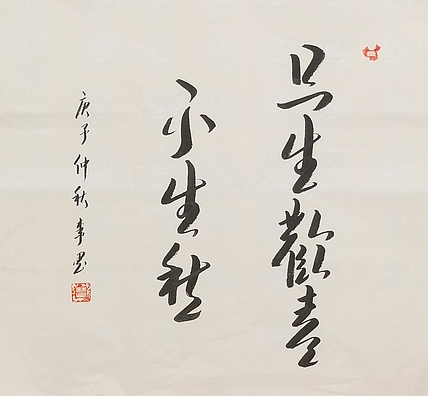 只生歡喜
不生愁
庚子仲秋